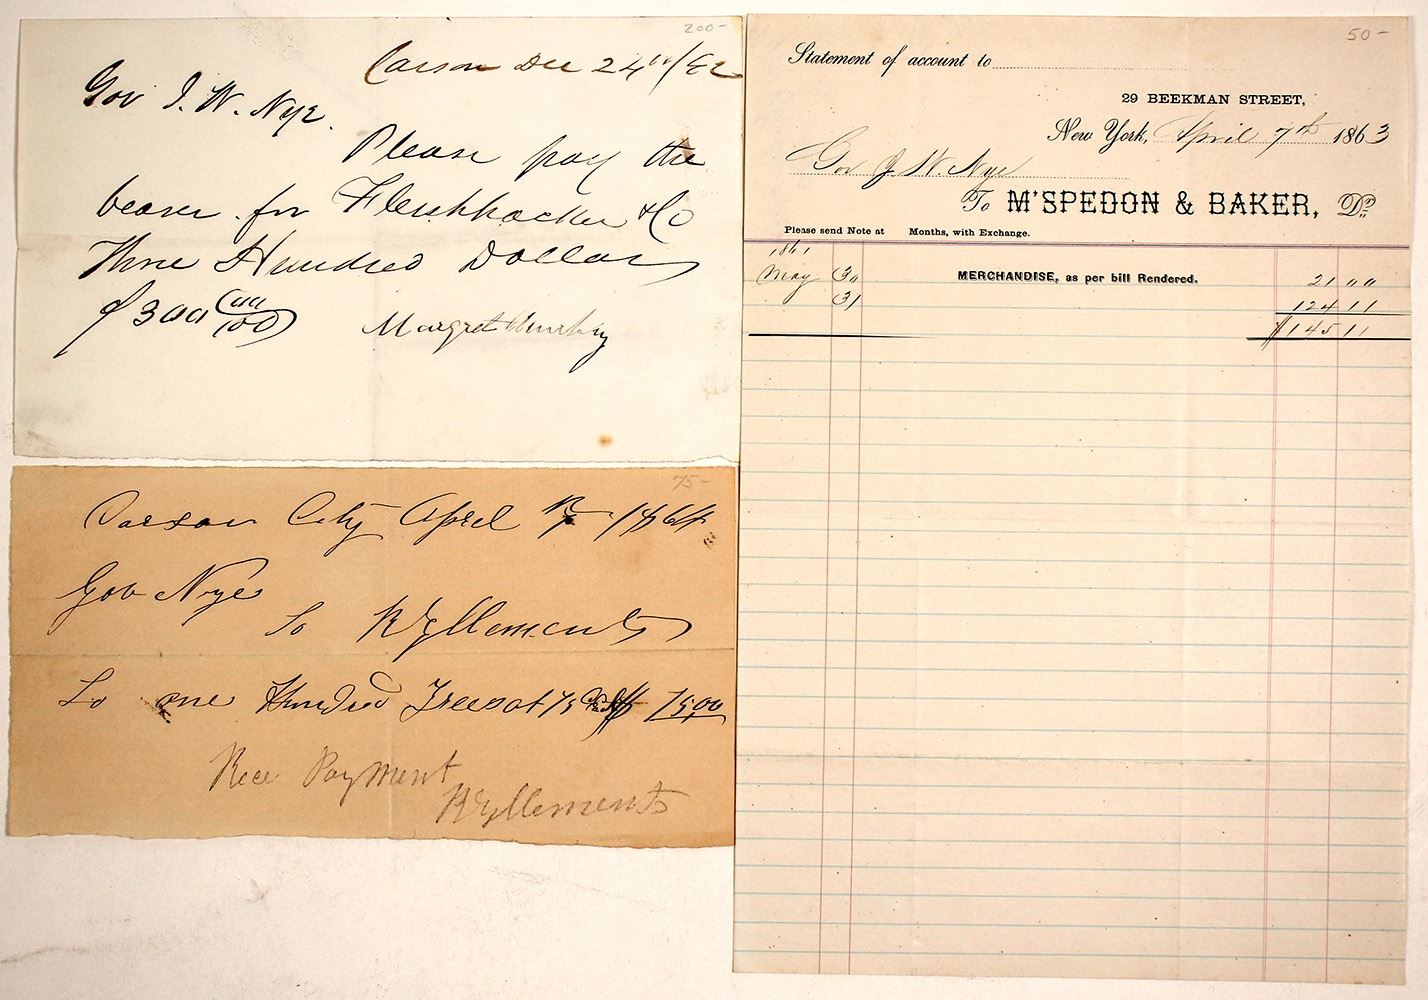 200-
Carson Dec 24th/62
Gov J. W. Nye.
Please pay the
bearer for Fleishhacker & Co
Three Hundred Dollars
$300 00/100 Margret
75-
Carson City April 1864
Gov Nye
To
To one Hundred Trees at 75 $ 75,00
Rece Payment
50-
Statement of account to
29 BEEKMAN STREET,
New York, April 7th 1863
Gov J. W. Nye
To M'SPEDON & BAKER, Dr.
Please send Note at Months, with Exchange.
1861
May 30 MERCHANDISE, as per bill Rendered. 21 " "
31 124 11
$145 11